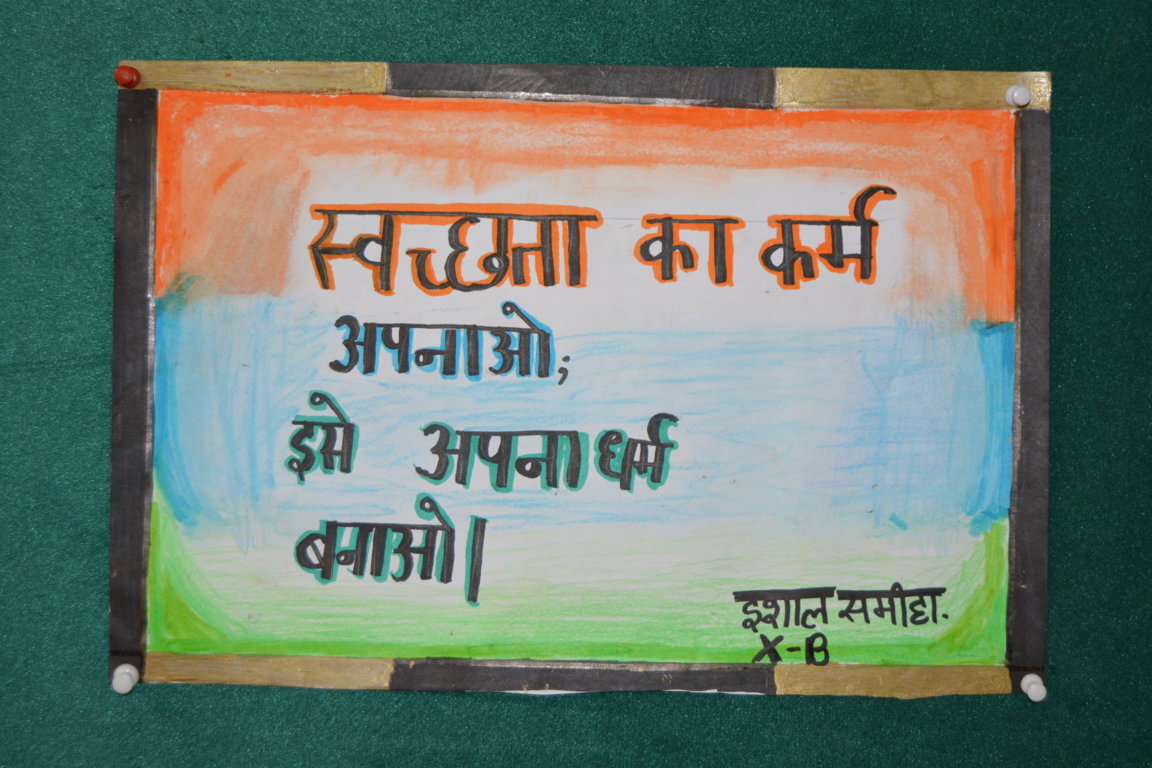 स्वच्छता का कर्म
अपनाओ;
इसे अपना धर्म
बनाओ|
इशाल समीहा.
X-B